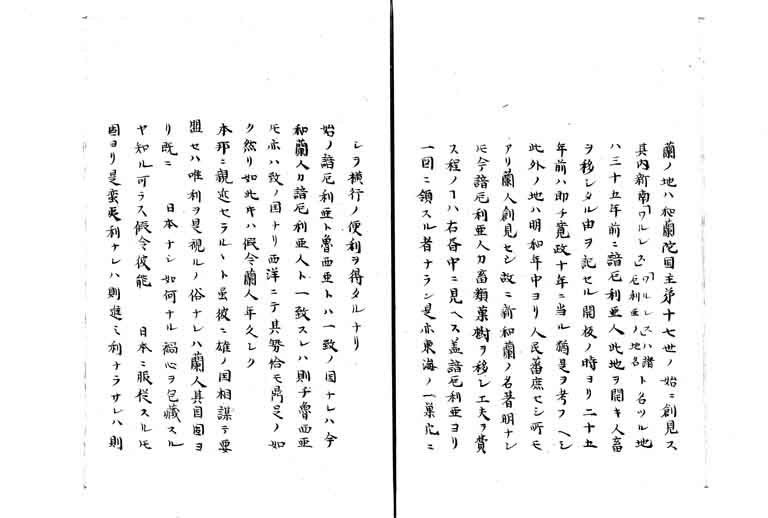 蘭ノ地ハ和蘭陀国主第十七世ノ始ニ創見ス
其内新南「ワルレス」「ワルレスハ諳厄利亜ノ地名ト名ツル地
ハ三十五年前ニ諳厄利亜人此地ヲ開キ人畜
ヲ移シタル由ヲ記セル開板ノ時ヨリ二十五
年前ハ即チ寛政十年ニ当ル猶是ヲ考フヘシ
此外ノ地ハ明和年中ヨリ人民蕃庶セシ所モ
アリ蘭人創見セシ故ニ新和蘭ノ名著明ナレ
モ今諳厄利亜人カ畜類菓樹ヲ移シ工夫ヲ費
ス程ノヿハ右書中ニ見ヘス盖諳厄利亜ヨリ
一円ニ領スル者ナラン是亦東海ノ一巣穴ニ
シテ横行ノ便利ヲ得タルナリ
始ノ諳厄利亜ト魯西亜トハ一致ノ国ナレハ今
和蘭人カ諳厄利亜人ト一致スレハ則チ魯西亜
モ亦ハ致ノ国ナリ西洋ニテ其勢恰モ鼎足ノ如
ク然リ如此キハ假令蘭人年久シク
本邦ニ親近セラルヽト虽彼ニ雄ノ国相謀テ要
盟セハ唯利ヲ是視ルノ俗ナレハ蘭人其固ヨ
リ既ニ 日本ナシ如何ナル禍心ヲ包藏スル
ヤ知ル可ラス假令彼能 日本ニ服従スルモ
固ヨリ是蛮夷利ナレハ則進ミ利ナラサレハ則